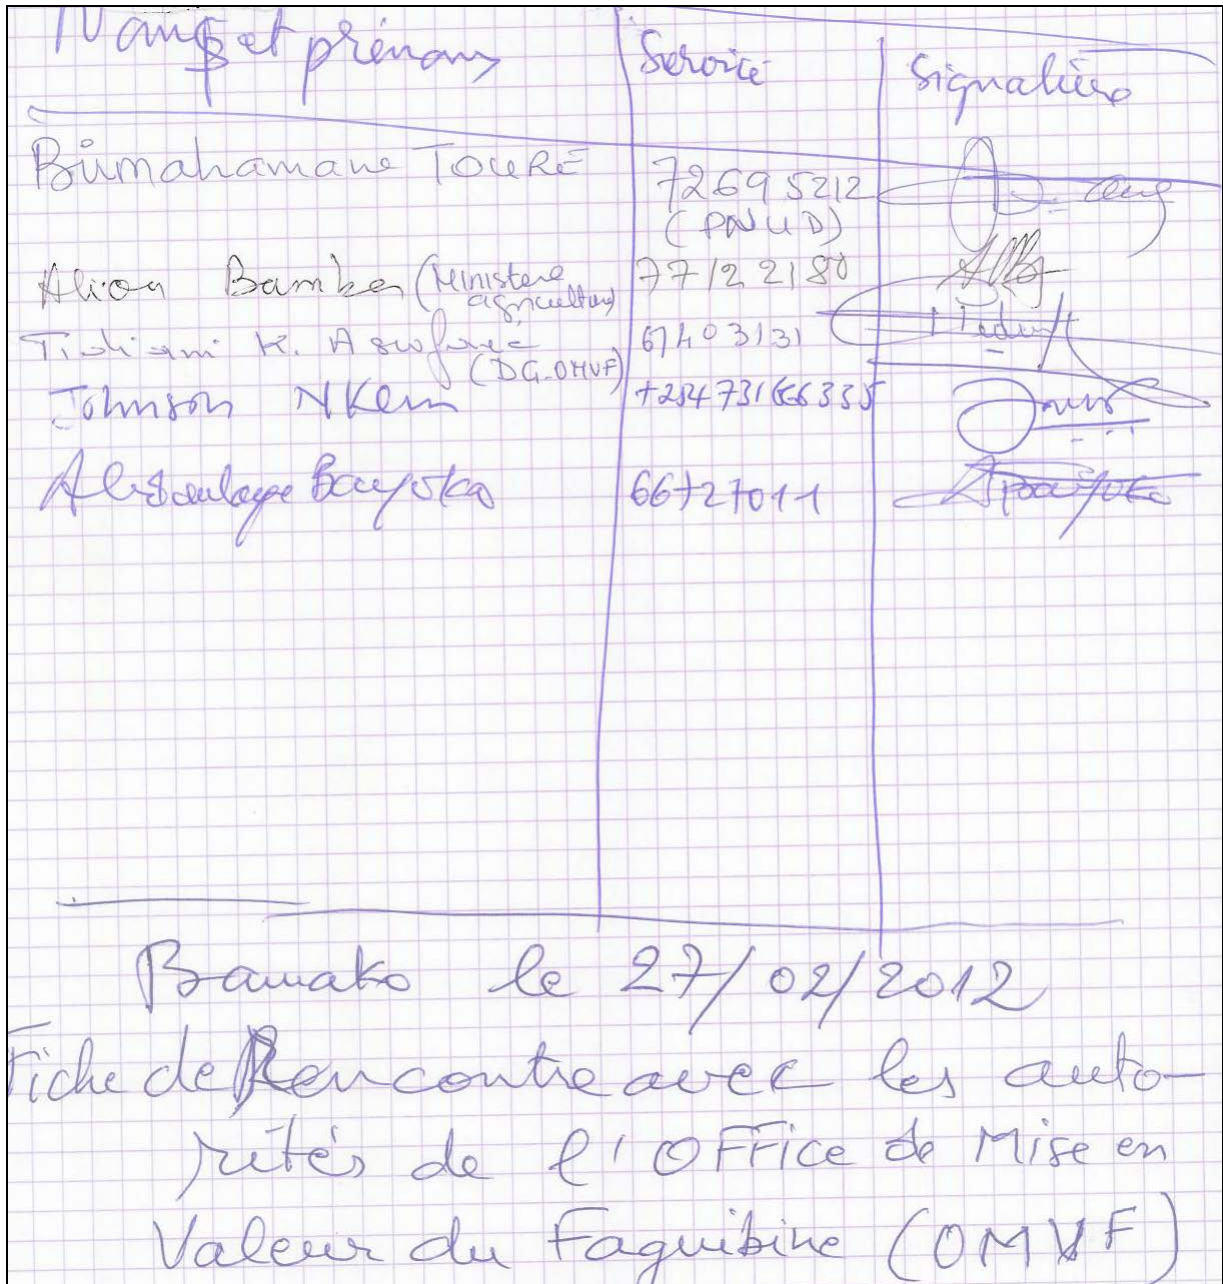 Noms et prénoms Service Signatures
Birmahamane TOURE 72695212
(PNUD)
Aliou Bamba (Ministere agriculture) 77122180
Tidiani K. (DG-OMVF) 67403131
Johnson NKem +254731666335
Bayoko 66727011
Bamako le 27/02/2012
Fiche de Rencontre avec les auto-
rités de l'OFFice de Mise en
Valeur du Faguibine (OMVF)